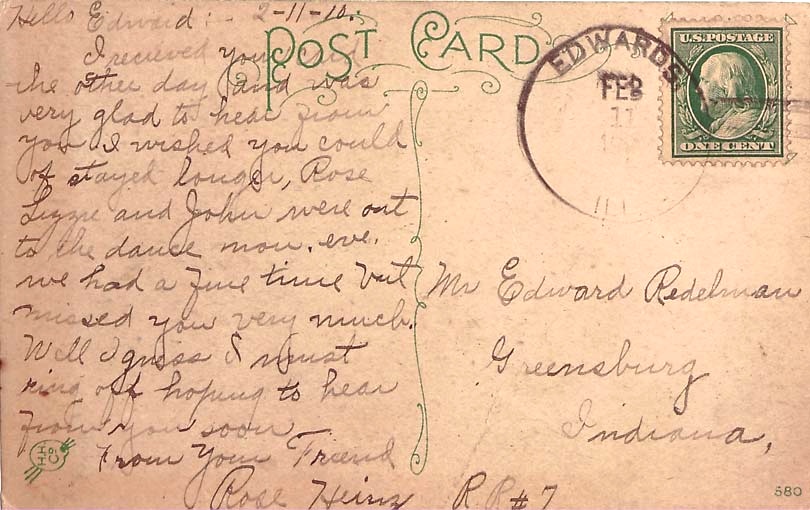 Hello Edward:- 2-11-10.
I recieved your card
the other day and was
very glad to hear from
you I wished you could
of stayed longer, Rose
Lizzie and John were out
to the dance mon. eve.
we had a fine time but
missed you very much.
Well I guess I must
ring off hoping to hear
from you soon
From Your Friend
Rose Heinz
POST CARD
EDWARDS
FEB
11
ILL
U.S. POSTAGE
ONE CENT
Mr Edward Redelman
Greensburg
Indiana,
R R # 7
H H Co
580